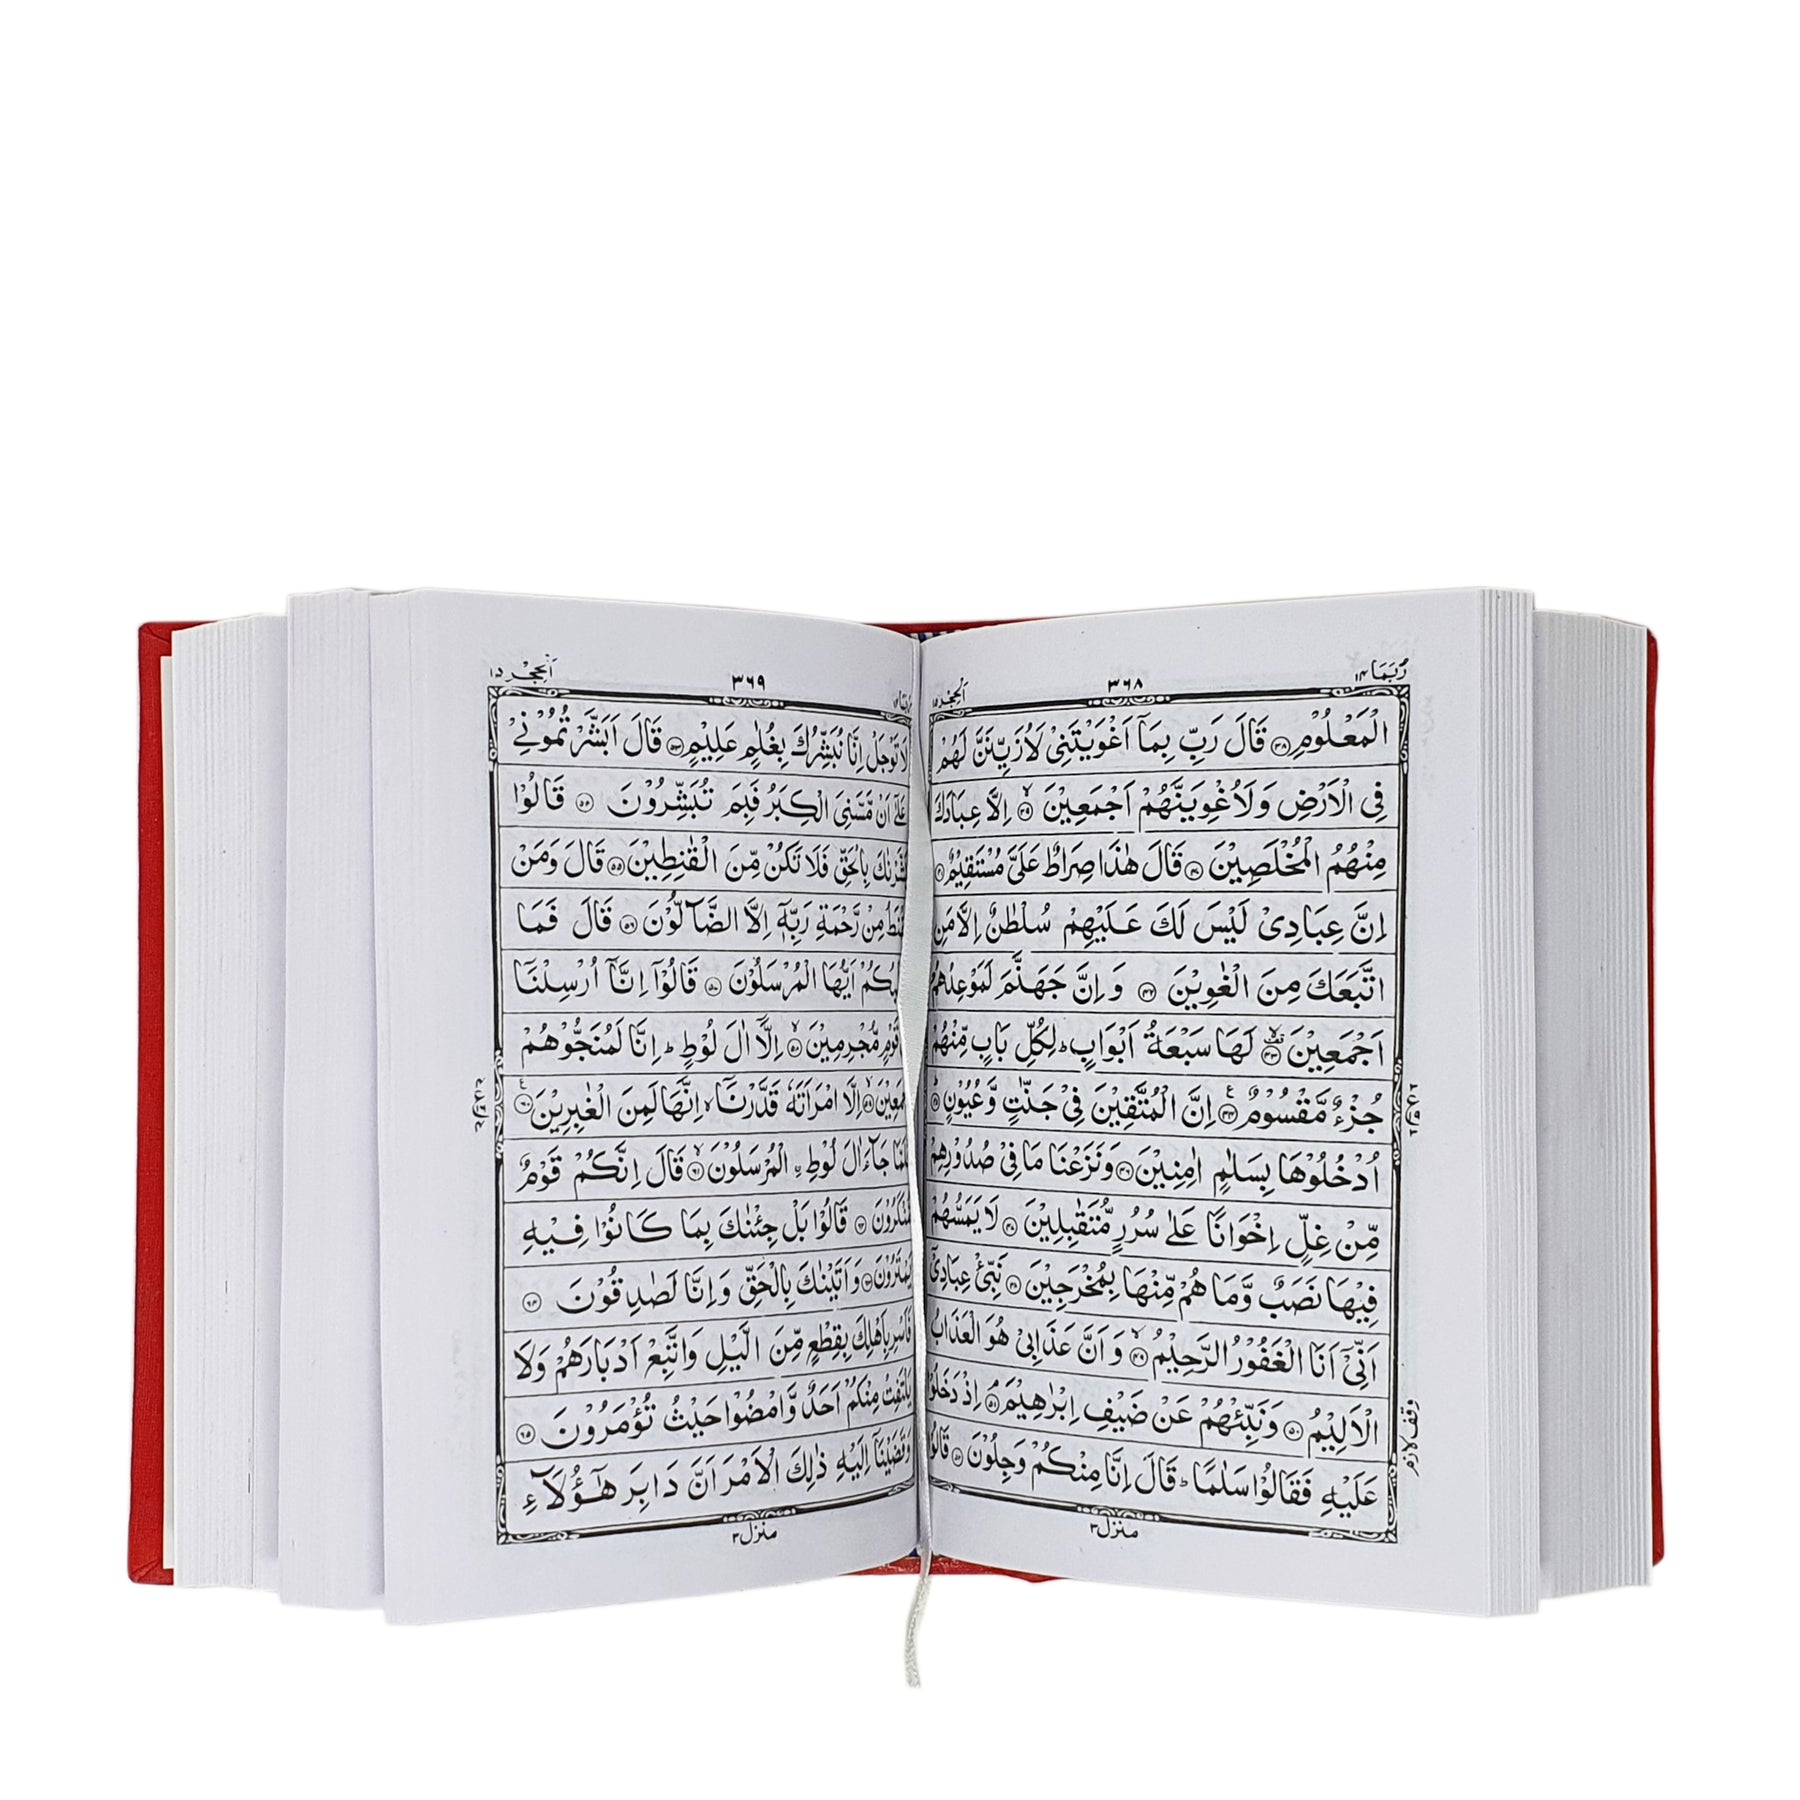 رُبَمَا ١٤
٣٦٨
اَلْحِجْر ١٥
الْمَعْلُوْمِ ۝٣٨ قَالَ رَبِّ بِمَاۤ اَغْوَيْتَنِىْ لَاُزَيِّنَنَّ لَهُمْ
فِى الْاَرْضِ وَلَاُغْوِيَنَّهُمْ اَجْمَعِيْنَ ۝٣٩ اِلَّا عِبَادَكَ
مِنْهُمُ الْمُخْلَصِيْنَ ۝٤٠ قَالَ هٰذَا صِرَاطٌ عَلَىَّ مُسْتَقِيْمٌ ۝٤١
اِنَّ عِبَادِىْ لَيْسَ لَكَ عَلَيْهِمْ سُلْطٰنٌ اِلَّا مَنِ
اتَّبَعَكَ مِنَ الْغٰوِيْنَ ۝٤٢ وَاِنَّ جَهَنَّمَ لَمَوْعِدُهُمْ
اَجْمَعِيْنَ ۝٤٣ لَهَا سَبْعَةُ اَبْوَابٍ ؕ لِكُلِّ بَابٍ مِّنْهُمْ
جُزْءٌ مَّقْسُوْمٌ ۝٤٤ اِنَّ الْمُتَّقِيْنَ فِىْ جَنّٰتٍ وَّعُيُوْنٍ ۝٤٥
اُدْخُلُوْهَا بِسَلٰمٍ اٰمِنِيْنَ ۝٤٦ وَنَزَعْنَا مَا فِىْ صُدُوْرِهِمْ
مِّنْ غِلٍّ اِخْوَانًا عَلٰى سُرُرٍ مُّتَقٰبِلِيْنَ ۝٤٧ لَا يَمَسُّهُمْ
فِيْهَا نَصَبٌ وَّمَا هُمْ مِّنْهَا بِمُخْرَجِيْنَ ۝٤٨ نَبِّئْ عِبَادِىْۤ
اَنِّىْۤ اَنَا الْغَفُوْرُ الرَّحِيْمُ ۝٤٩ وَاَنَّ عَذَابِىْ هُوَ الْعَذَابُ
الْاَلِيْمُ ۝٥٠ وَنَبِّئْهُمْ عَنْ ضَيْفِ اِبْرٰهِيْمَ ۝٥١ اِذْ دَخَلُوْا
عَلَيْهِ فَقَالُوْا سَلٰمًا ؕ قَالَ اِنَّا مِنْكُمْ وَجِلُوْنَ ۝٥٢ قَالُوْا
وقف لازم
منزل ٣
اَلْحِجْر ١٥
٣٦٩
لَا تَوْجَلْ اِنَّا نُبَشِّرُكَ بِغُلٰمٍ عَلِيْمٍ ۝٥٣ قَالَ اَبَشَّرْتُمُوْنِىْ
عَلٰٓى اَنْ مَّسَّنِىَ الْكِبَرُ فَبِمَ تُبَشِّرُوْنَ ۝٥٤ قَالُوْا
بَشَّرْنٰكَ بِالْحَقِّ فَلَا تَكُنْ مِّنَ الْقٰنِطِيْنَ ۝٥٥ قَالَ وَمَنْ
يَّقْنَطُ مِنْ رَّحْمَةِ رَبِّهٖۤ اِلَّا الضَّآلُّوْنَ ۝٥٦ قَالَ فَمَا
خَطْبُكُمْ اَيُّهَا الْمُرْسَلُوْنَ ۝٥٧ قَالُوْۤا اِنَّاۤ اُرْسِلْنَاۤ
قَوْمٍ مُّجْرِمِيْنَ ۝٥٨ اِلَّاۤ اٰلَ لُوْطٍ ؕ اِنَّا لَمُنَجُّوْهُمْ
اَجْمَعِيْنَ ۝٥٩ اِلَّا امْرَاَتَهٗ قَدَّرْنَاۤ ۙ اِنَّهَا لَمِنَ الْغٰبِرِيْنَ ۝٦٠
فَلَمَّا جَآءَ اٰلَ لُوْطِ ۨ الْمُرْسَلُوْنَ ۝٦١ قَالَ اِنَّكُمْ قَوْمٌ
مُّنْكَرُوْنَ ۝٦٢ قَالُوْا بَلْ جِئْنٰكَ بِمَا كَانُوْا فِيْهِ
يَمْتَرُوْنَ ۝٦٣ وَاَتَيْنٰكَ بِالْحَقِّ وَاِنَّا لَصٰدِقُوْنَ ۝٦٤
فَاَسْرِ بِاَهْلِكَ بِقِطْعٍ مِّنَ الَّيْلِ وَاتَّبِعْ اَدْبَارَهُمْ وَلَا
يَلْتَفِتْ مِنْكُمْ اَحَدٌ وَّامْضُوْا حَيْثُ تُؤْمَرُوْنَ ۝٦٥
وَقَضَيْنَاۤ اِلَيْهِ ذٰلِكَ الْاَمْرَ اَنَّ دَابِرَ هٰٓؤُلَآءِ
منزل ٣